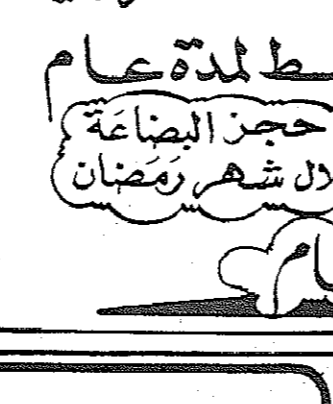 ـط لمدة عـام
حجز البضاعة
لال شهر رمضان
ـام